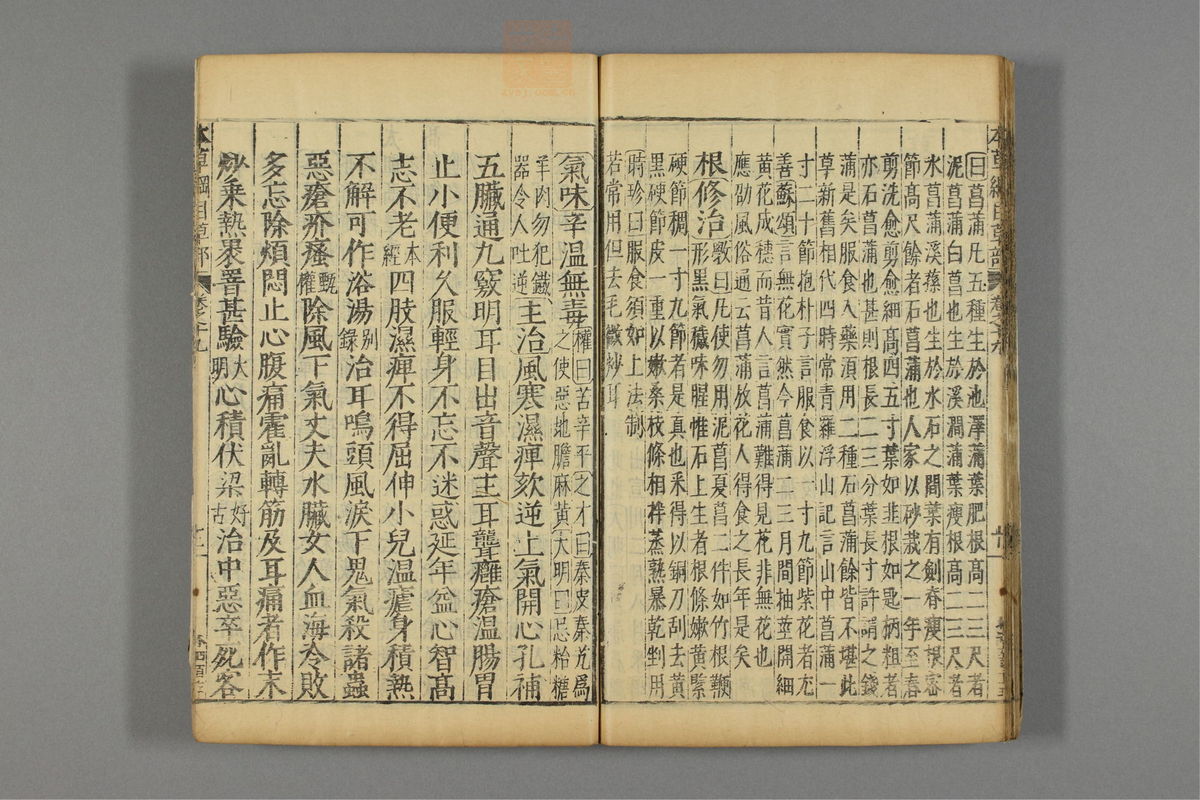 曰菖蒲凡五種生於池澤蒲葉肥根高二三尺者
泥菖蒲白菖也生於溪澗蒲葉瘦根高二三尺者
水菖蒲溪蓀也生於水石之間葉有劍脊瘦根密
節高尺餘者石菖蒲也人家以砂栽之一年至春
剪洗愈剪愈細高四五寸葉如韭根如匙柄粗者
亦石菖蒲也甚則根長二三分葉長寸許謂之錢
蒲是矣服食入藥須用二種石菖蒲餘皆不堪此
草新舊相代四時常青羅浮山記言山中菖蒲一
寸二十節抱朴子言服食以一寸九節紫花者尤
善蘇頌言無花實然今菖蒲二三月間抽莖開細
黄花成穗而昔人言菖蒲難得見花非無花也
應劭風俗通云菖蒲放花人得食之長年是矣
根修治斆曰凡使勿用泥菖夏菖二件如竹根鞭
形黑氣穢味腥惟石上生者根條嫩黄緊
硬節稠一寸九節者是真也采得以銅刀刮去黄
黑硬節皮一重以嫩桑枝條相拌蒸熟暴乾剉用
時珍曰服食須如上法制
若常用但去毛微炒耳
氣味辛溫無毒權曰苦辛平之才曰秦皮秦艽為
之使惡地膽麻黄大明曰忌飴糖
羊肉勿犯鐵
器令人吐逆主治風寒濕痺欬逆上氣開心孔補
五臟通九竅明耳目出音聲主耳聾癰瘡溫腸胃
止小便利久服輕身不忘不迷惑延年益心智高
志不老本經四肢濕痺不得屈伸小兒溫瘧身積熱
不解可作浴湯别錄治耳鳴頭風淚下鬼氣殺諸蟲
惡瘡疥瘙甄權除風下氣丈夫水臟女人血海冷敗
多忘除煩悶止心腹痛霍亂轉筋及耳痛者作末
炒乗熱裹罯甚驗大明心積伏梁好古治中惡卒死客
本草綱目草部
卷之十九